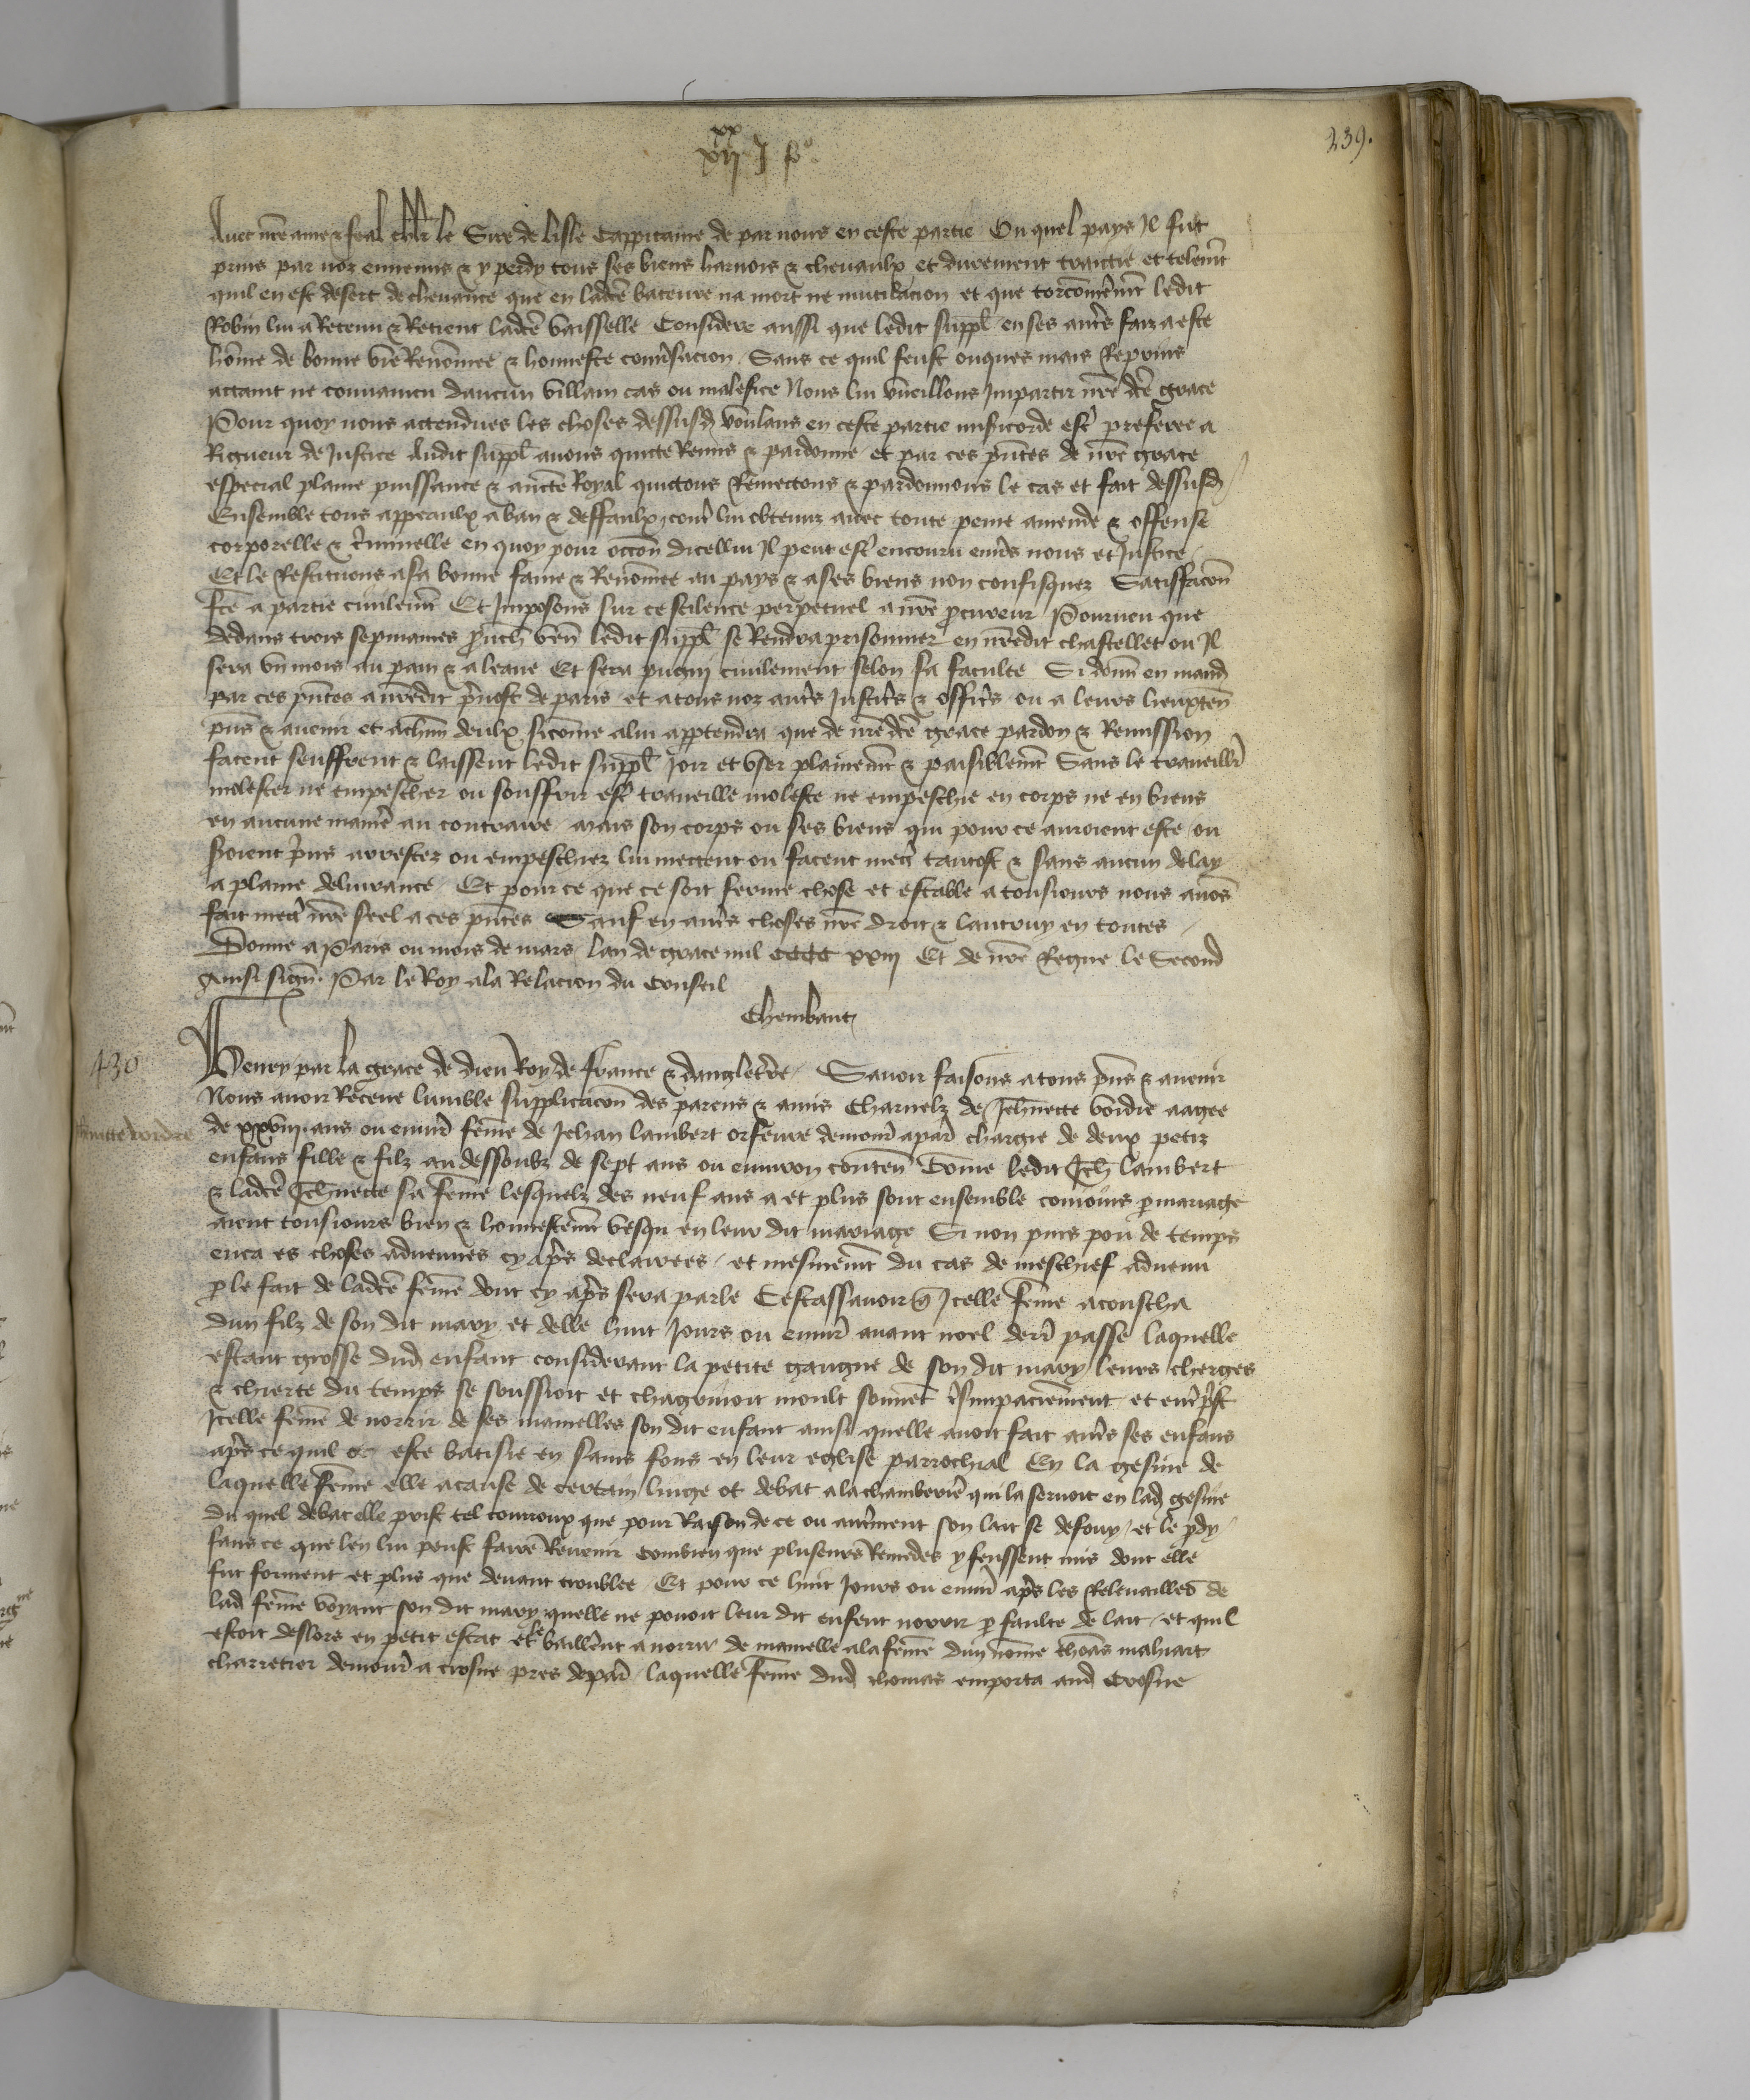 xx
xii j xxo
239.
Avec nre ame & feal chlr le Sire de Lisle Cappitaine de par nous en ceste partie Ou quel pays Il fut
prins par noz ennemis & y perdy tous ses biens harnois & chevaulx et durement traictie et telemt
quil en est desert de chevance que en ladce bateure na mort ne mutilacion et que torconnemt ledit
Robin lui a Retenu & Retient ladce vaisselle Considere aussi que ledit suppl en ses autrs faiz a este
home de bonne vie Renomee & honneste conversacion Sans ce quil feust onques mais Reprins
actaint ne convaincu daucun villain cas ou malefice Nous lui vueillons Impartir nre dce grace
Pour quoy nous attendues les choses dessusd voulans en ceste partie misicorde estr preferee a
Rigueur de Justice Audit suppl avons quicte Remis & pardonne et par ces pntes de nre grace
especial plaine puissance & aucte Royal quictons Remectons & pardonnons le cas et fait dessusd
Ensemble tous appeaulx a ban & deffaulx contr lui obtenuz avec toute peine amende & offense
corporelle & criminelle en quoy pour occon dicellui Il peut estr encouru envrs nous et Justice
Et le Restituons a sa bonne fame & Renomee au pays & a ses biens non confisquez Satisfacon
fce a partie civilemt Et Imposons sur ce scilence perpetuel a nre procureur Pourveu que
dedans trois sepmaines prouch ven ledit suppl se Rendra prisonnier en nredit chastellet ou Il
sera un mois au pain & a leaue Et sera pugny civilement selon sa faculte Si donn en mand
par ces pntes a nredit prevost de paris et a tous noz autrs Justicrs & officrs ou a leurs lieuxten
pns & avenir et a chun deulx sicomme a lui apptendra que de nre dce grace pardon & Remission
facent seuffrent & laissent ledit suppl Joir et user plainemt & paisiblemt Sans le traveillr
molester ne empescher ou souffrir estr traveille moleste ne empeschie en corps ne en biens
en aucune manie au contraire Mais son corps ou ses biens qui pour ce auroient este ou
seroient prins arrestez ou empeschiez lui mectent ou facent mectr tantost & sans aucun delay
a plaine delivrance Et pour ce que ce soit ferme chose et estable a tousiours nous avons
fait mectr nre seel a ces pntes Sauf en autrs choses nre droit & lautruy en toutes
Donne a Paris ou mois de mars Lan de grace mil cccc xxiij Et de nre Regne le Second
Ainsi sign. Par le Roy a la Relacion du Conseil
Chembaut
430
Jehnnette Voidie
Henry par la grace de dieu Roy de france & dangletrre Savoir faisons a tous pns & avenir
Nous avoir Receue lumble supplicacon des parens & amis Charnelz de Jehnnette Voidie aagee
de xxviij ans ou envir feme de Jehan Lambert orfevre demour a par chargie de deux petiz
enfans fille & filz au dessoubz de sept ans ou environ conten Come ledit Jeh Lambert
& ladce Jehnnette sa feme lesquelz des neuf ans a et plus sont ensemble conioins p mariage
aient tousiours bien & honnestemt vesqu en leur dit mariage Si non puis pou de temps
enca es choses advenues cy aprs declairees et mesmemt du cas de meschief advenu
p le fait de ladce feme dont cy aprs sera parle Cestassavoir q Icelle feme acoucha
dun filz de son dit mary et delle huit Jours ou envir avant noel derr passe laquelle
estant grosse dud enfant considerant la petite gaigne de son dit mary leurs cherges
& chierte du temps se soussioit et chagrinoit moult souvet & Impaciemment et entrprist
Icelle feme de norrir de ses mamelles son dit enfant ainsi quelle avoit fait autrs ses enfans
aprs ce quil ot este batisie en sains fons en leur eglise parrochial En la gesine de
laquelle feme elle a cause de certain linge ot debat a la chamberiere qui la servoit en lad gesine
du quel debat elle prist tel courroux que pour Raison de ce ou autrment son lait se defouy et le pdy
sans ce que len lui peust faire Revenir Combien que pluseurs Remedes y feussent mis dont elle
fut forment et plus que devant troublee Et pour ce huit Jours ou envir aprs les Relevailles de
lad feme voyant son dit mary quelle ne povoit leur dit enfent norrir p faulte de lait et quil
estoit deslors en petit estat et le baillerent a norrir de mamelle a la feme dun nome thoas maluart
charretier demour a Crosne pres de par laquelle feme dud thomas emporta aud Crosne